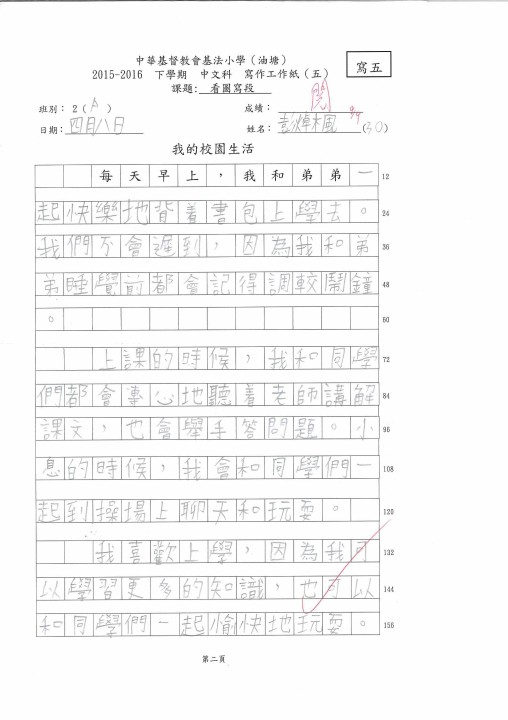 中華基督教會基法小學（油塘）
寫五
2015-2016 下學期 中文科 寫作工作紙（五）
課題：看圖寫段
班別：2（A）
成績：閱 94
日期：四月八日
姓名：彭焯楓(30)
我的校園生活
每天早上，我和弟弟一 12
起快樂地背着書包上學去。 24
我們不會遲到，因為我和弟 36
弟睡覺前都會記得調較鬧鐘 48
。 60
上課的時候，我和同學 72
們都會專心地聽着老師講解 84
課文，也會舉手答問題。小 96
息的時候，我會和同學們一 108
起到操場上聊天和玩耍。 120
我喜歡上學，因為我可 132
以學習更多的知識，也可以 144
和同學們一起愉快地玩耍。 156
第二頁